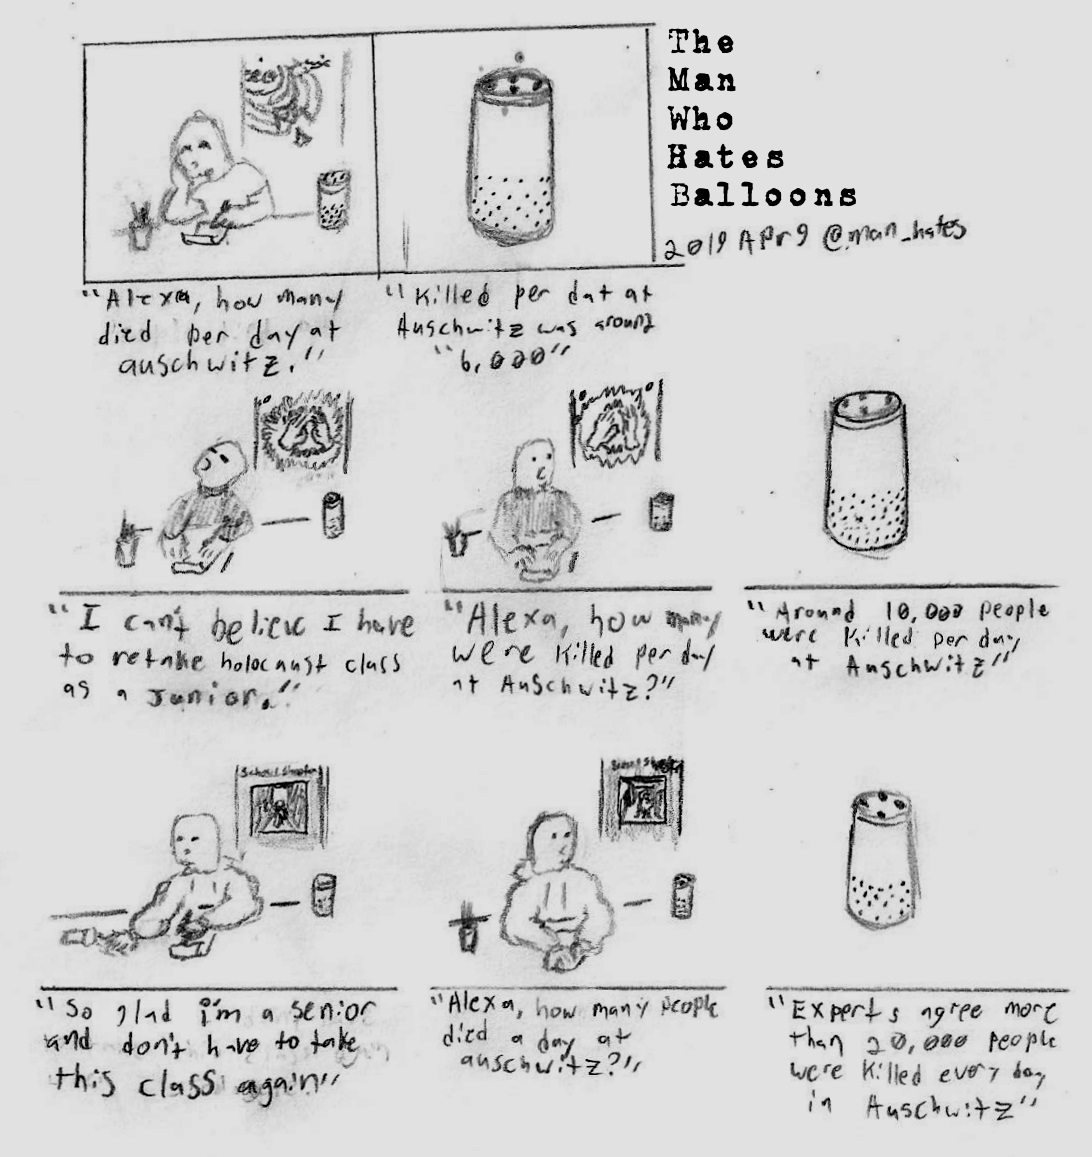 The
Man
Who
Hates
Balloons
2019 APr 9 @man_hates
"Alexa, how many
died per day at
auschwitz."
"Killed per dat at
Auschwitz was around
"6,000"
"I can't believe I have
to retake holocaust class
as a Junior."
"Alexa, how many
were Killed per day
at Auschwitz?"
"Around 10,000 People
were Killed per day
at Auschwitz"
School Shooting
"So glad i'm a senior
and don't have to take
this class again"
"Alexa, how many people
died a day at
auschwitz?"
"Experts agree more
than 20,000 people
were Killed every day
in Auschwitz"